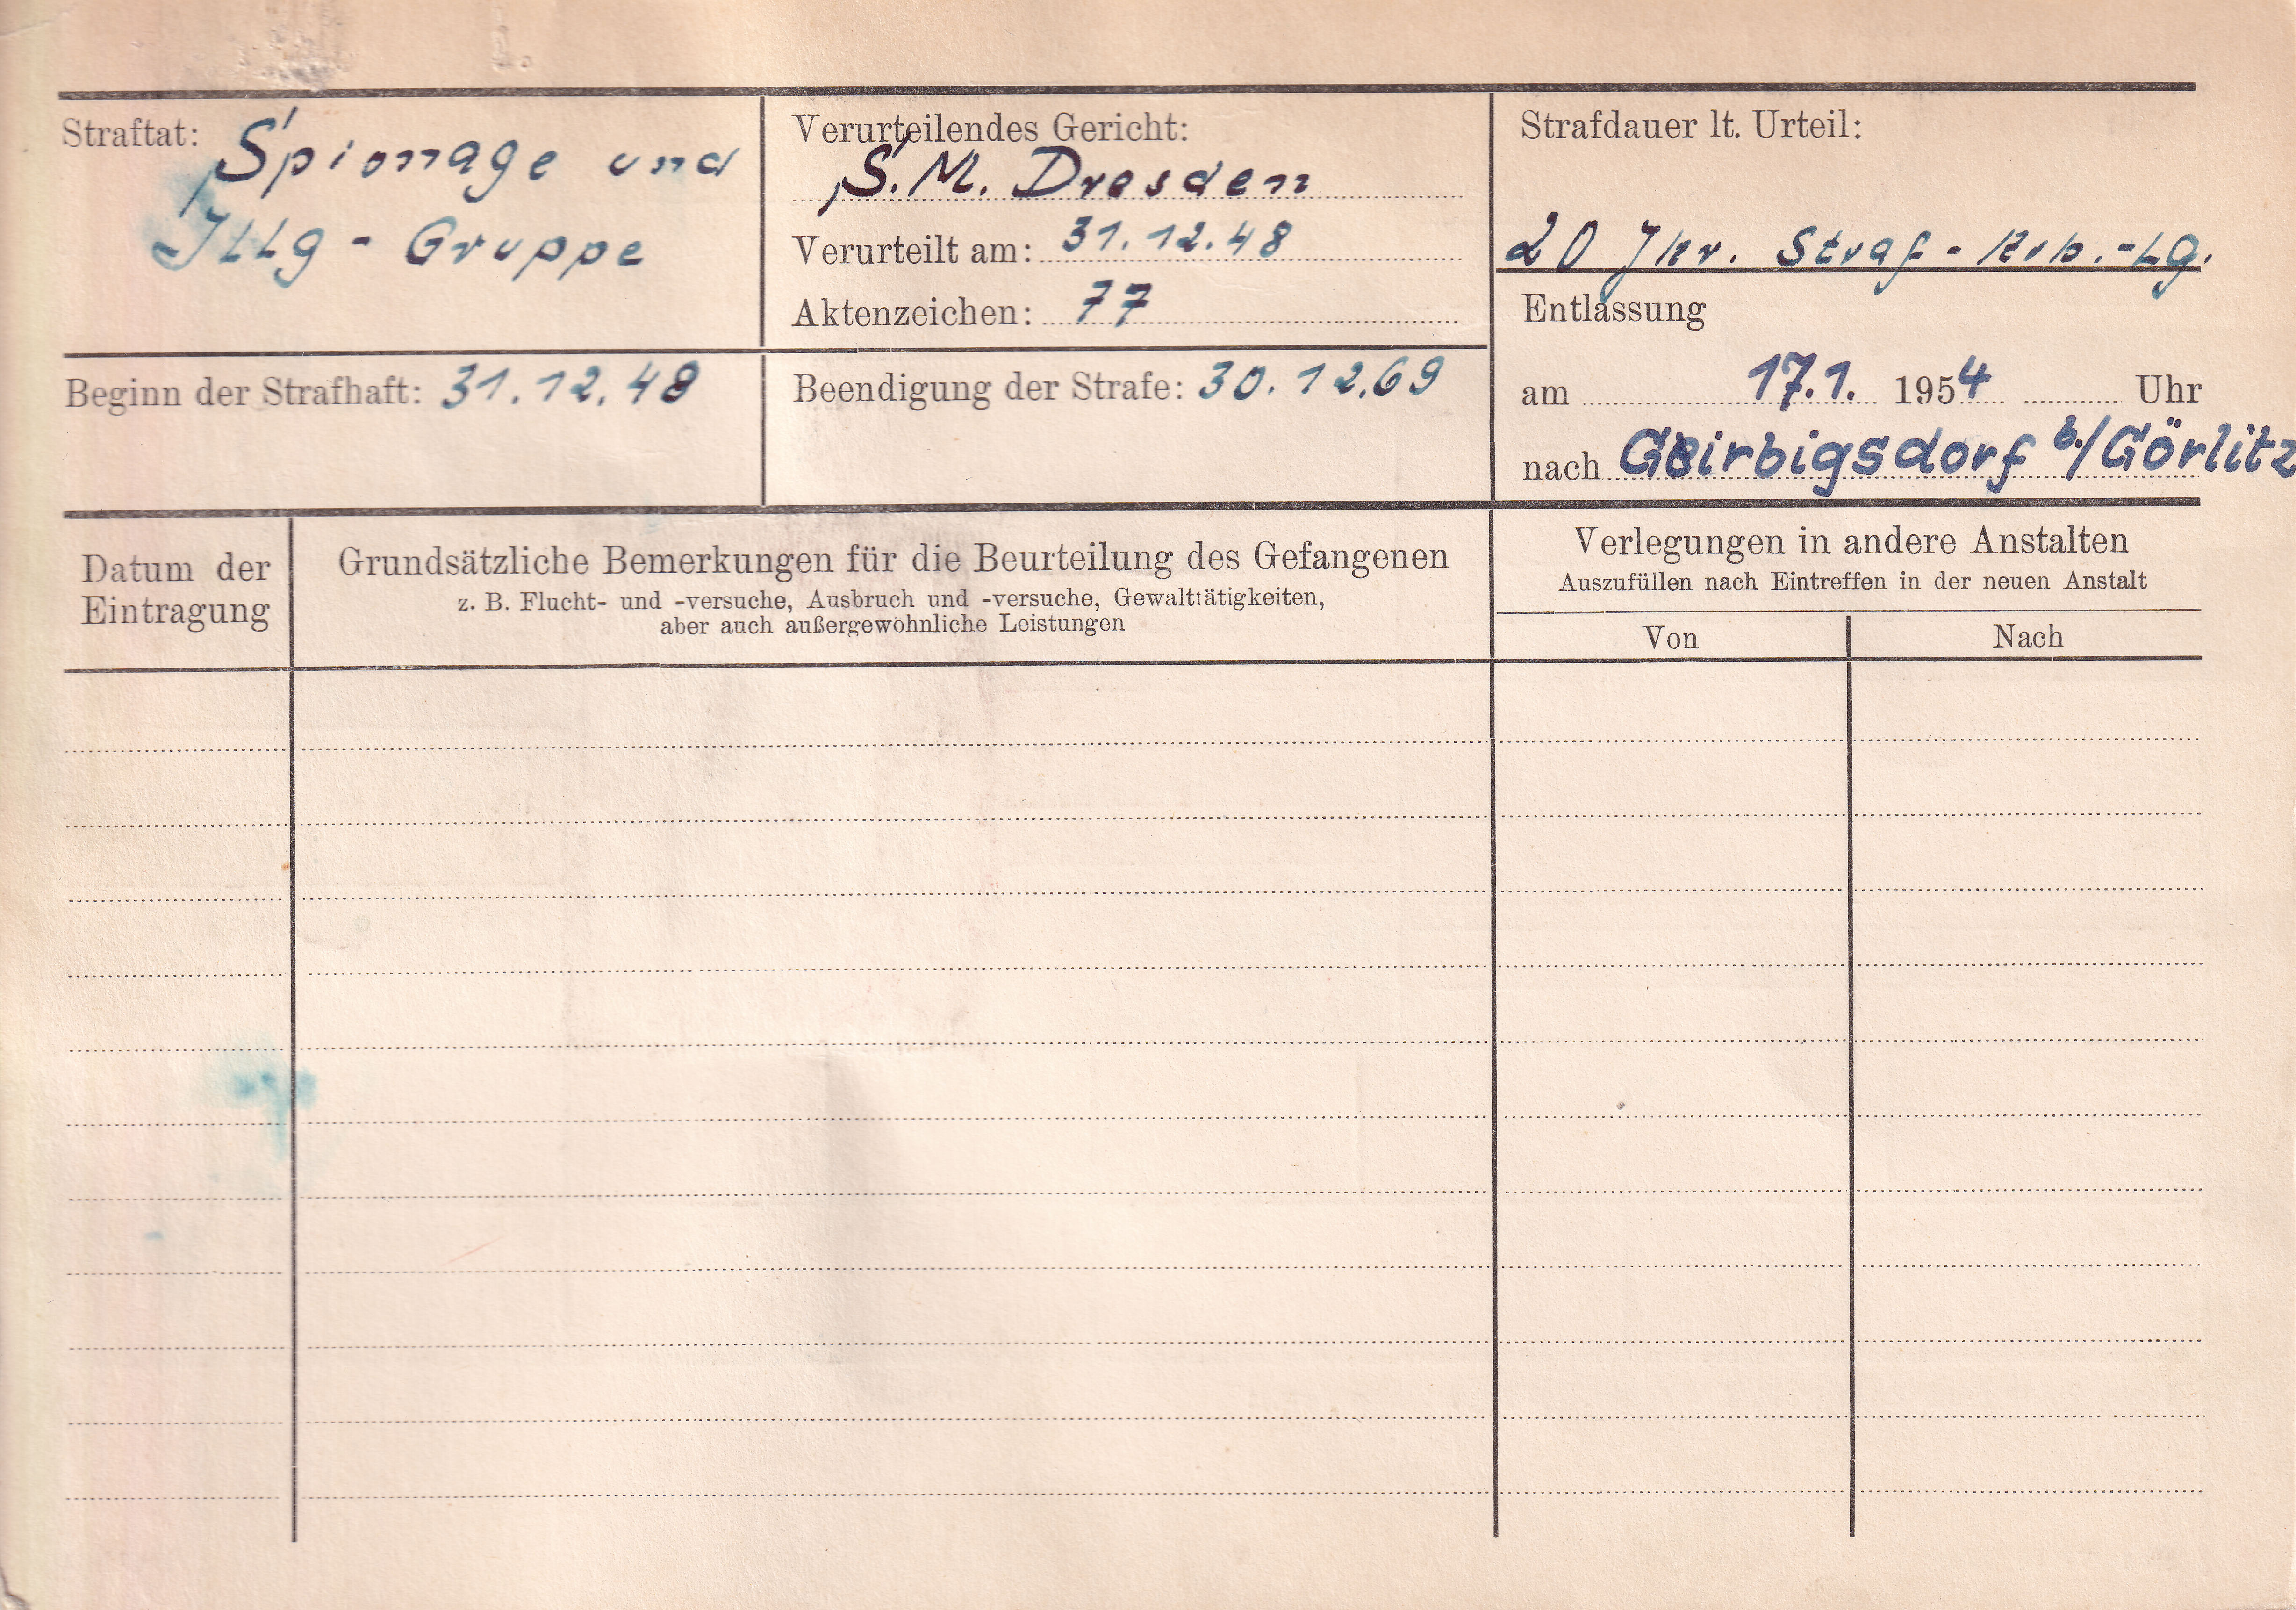 Straftat: Spionage und
Jllg - Gruppe
Verurteilendes Gericht:
S. M. Dresden
Verurteilt am: 31.12.48
Aktenzeichen: 77
Strafdauer lt. Urteil:
20 Jhr. Straf - Arb.-Lg.
Beginn der Strafhaft: 31.12.48
Beendigung der Strafe: 30.12.69
Entlassung
am 17.1. 1954 Uhr
nach Geirbigsdorf b./Görlitz
Datum der
Eintragung
Grundsätzliche Bemerkungen für die Beurteilung des Gefangenen
z. B. Flucht- und -versuche, Ausbruch und -versuche, Gewalttätigkeiten,
aber auch außergewöhnliche Leistungen
Verlegungen in andere Anstalten
Auszufüllen nach Eintreffen in der neuen Anstalt
Von
Nach